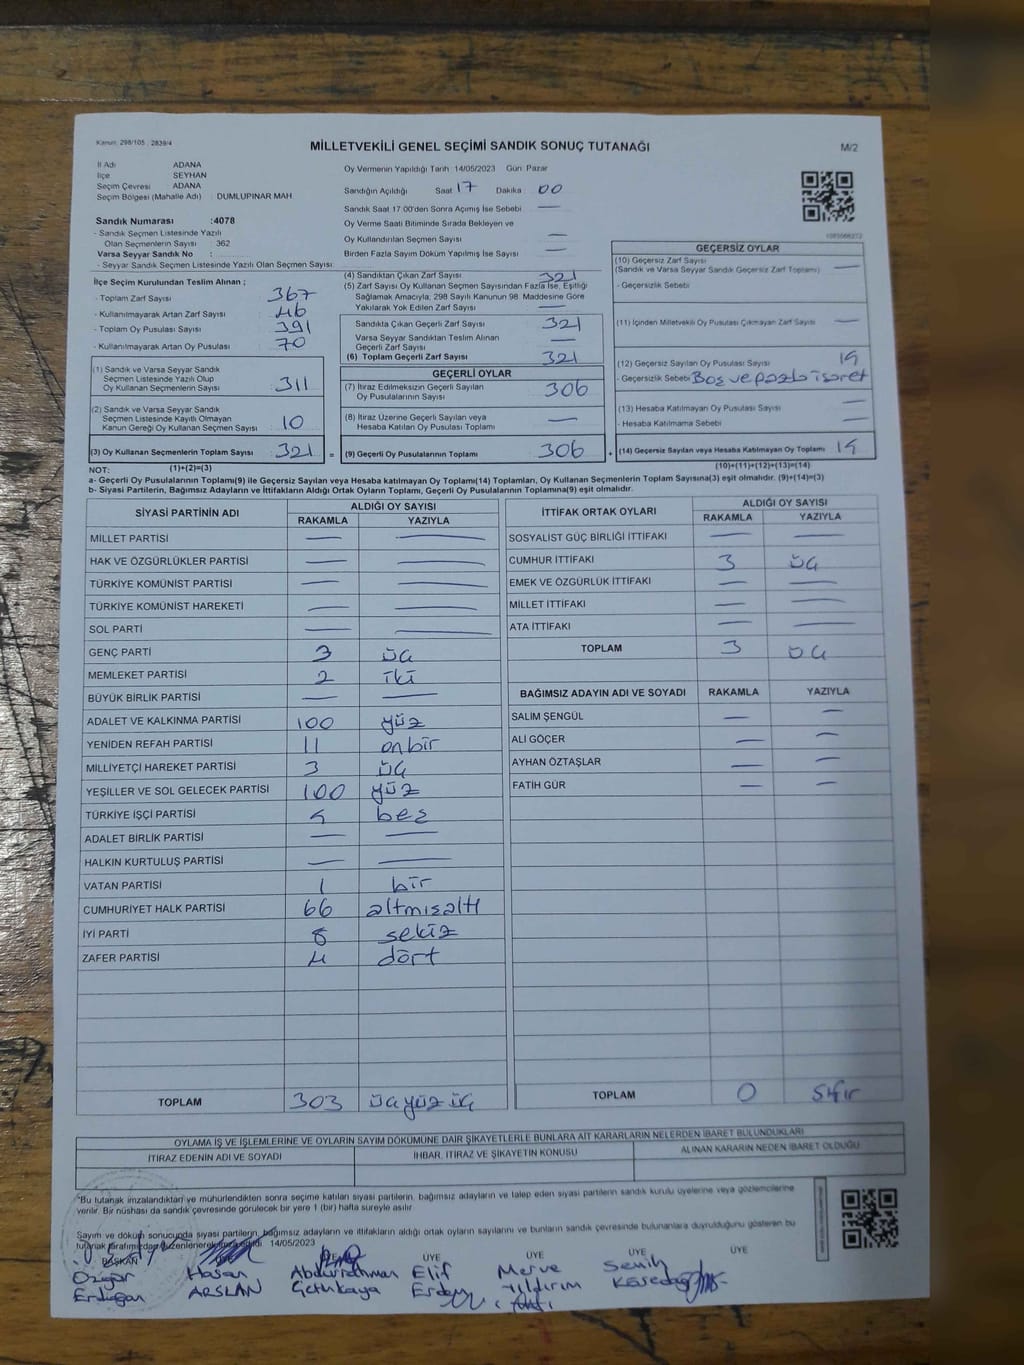 Kanun: 298/105, 2839/4
MİLLETVEKİLİ GENEL SEÇİMİ SANDIK SONUÇ TUTANAĞI
M/2
İl Adı ADANA
İlçe SEYHAN
Seçim Çevresi : ADANA
Seçim Bölgesi (Mahalle Adı) : DUMLUPINAR MAH
Sandık Numarası :4078
- Sandık Seçmen Listesinde Yazılı
Olan Seçmenlerin Sayısı : 362
Varsa Seyyar Sandık No :
- Seyyar Sandık Seçmen Listesinde Yazılı Olan Seçmen Sayısı:
Oy Vermenin Yapıldığı Tarih 14/05/2023 Gün Pazar
Sandığın Açıldığı Saat 17 Dakika 00
Sandık Saat 17:00'den Sonra Açılmış İse Sebebi —
Oy Verme Saati Bitiminde Sırada Bekleyen ve
Oy Kullandırılan Seçmen Sayısı —
Birden Fazla Sayım Döküm Yapılmış İse Sayısı —
İlçe Seçim Kurulundan Teslim Alınan ;
- Toplam Zarf Sayısı : 367
- Kullanılmayarak Artan Zarf Sayısı : 46
- Toplam Oy Pusulası Sayısı : 391
- Kullanılmayarak Artan Oy Pusulası : 70
(1) Sandık ve Varsa Seyyar Sandık
Seçmen Listesinde Yazılı Olup
Oy Kullanan Seçmenlerin Sayısı : 311
(2) Sandık ve Varsa Seyyar Sandık
Seçmen Listesinde Kayıtlı Olmayan
Kanun Gereği Oy Kullanan Seçmen Sayısı : 10
(3) Oy Kullanan Seçmenlerin Toplam Sayısı : 321 =
(4) Sandıktan Çıkan Zarf Sayısı 321
(5) Zarf Sayısı Oy Kullanan Seçmen Sayısından Fazla İse, Eşitliği
Sağlamak Amacıyla; 298 Sayılı Kanunun 98. Maddesine Göre
Yakılarak Yok Edilen Zarf Sayısı —
Sandıkta Çıkan Geçerli Zarf Sayısı 321
Varsa Seyyar Sandıktan Teslim Alınan
Geçerli Zarf Sayısı —
(6) Toplam Geçerli Zarf Sayısı 321
GEÇERLİ OYLAR
(7) İtiraz Edilmeksizin Geçerli Sayılan
Oy Pusulalarının Sayısı 306
(8) İtiraz Üzerine Geçerli Sayılan veya
Hesaba Katılan Oy Pusulası Toplamı —
(9) Geçerli Oy Pusulalarının Toplamı 306 +
GEÇERSİZ OYLAR
(10) Geçersiz Zarf Sayısı
(Sandık ve Varsa Seyyar Sandık Geçersiz Zarf Toplamı) —
- Geçersizlik Sebebi
(11) İçinden Milletvekili Oy Pusulası Çıkmayan Zarf Sayısı —
(12) Geçersiz Sayılan Oy Pusulası Sayısı 15
- Geçersizlik Sebebi Boş ve fazla işaret
(13) Hesaba Katılmayan Oy Pusulası Sayısı —
- Hesaba Katılmama Sebebi —
(14) Geçersiz Sayılan veya Hesaba Katılmayan Oy Toplamı 15
NOT: (1)+(2)=(3) (10)+(11)+(12)+(13)=(14)
a- Geçerli Oy Pusulalarının Toplamı(9) ile Geçersiz Sayılan veya Hesaba katılmayan Oy Toplamı(14) Toplamları, Oy Kullanan Seçmenlerin Toplam Sayısına(3) eşit olmalıdır. (9)+(14)=(3)
b- Siyasi Partilerin, Bağımsız Adayların ve İttifakların Aldığı Ortak Oyların Toplamı, Geçerli Oy Pusulalarının Toplamına(9) eşit olmalıdır.
SİYASİ PARTİNİN ADI ALDIĞI OY SAYISI
RAKAMLA YAZIYLA
MİLLET PARTİSİ — —
HAK VE ÖZGÜRLÜKLER PARTİSİ — —
TÜRKİYE KOMÜNİST PARTİSİ — —
TÜRKİYE KOMÜNİST HAREKETİ — —
SOL PARTİ — —
GENÇ PARTİ 3 üç
MEMLEKET PARTİSİ 2 iki
BÜYÜK BİRLİK PARTİSİ — —
ADALET VE KALKINMA PARTİSİ 100 yüz
YENİDEN REFAH PARTİSİ 11 onbir
MİLLİYETÇİ HAREKET PARTİSİ 3 üç
YEŞİLLER VE SOL GELECEK PARTİSİ 100 yüz
TÜRKİYE İŞÇİ PARTİSİ 5 beş
ADALET BİRLİK PARTİSİ — —
HALKIN KURTULUŞ PARTİSİ — —
VATAN PARTİSİ 1 bir
CUMHURİYET HALK PARTİSİ 66 altmışaltı
İYİ PARTİ 8 sekiz
ZAFER PARTİSİ 4 dört
TOPLAM 303 üçyüz üç
İTTİFAK ORTAK OYLARI ALDIĞI OY SAYISI
RAKAMLA YAZIYLA
SOSYALİST GÜÇ BİRLİĞİ İTTİFAKI — —
CUMHUR İTTİFAKI 3 üç
EMEK VE ÖZGÜRLÜK İTTİFAKI — —
MİLLET İTTİFAKI — —
ATA İTTİFAKI — —
TOPLAM 3 üç
BAĞIMSIZ ADAYIN ADI VE SOYADI RAKAMLA YAZIYLA
SALİM ŞENGÜL — —
ALİ GÖÇER — —
AYHAN ÖZTAŞLAR — —
FATİH GÜR — —
TOPLAM 0 sıfır
OYLAMA İŞ VE İŞLEMLERİNE VE OYLARIN SAYIM DÖKÜMÜNE DAİR ŞİKAYETLERLE BUNLARA AİT KARARLARIN NELERDEN İBARET BULUNDUKLARI
İTİRAZ EDENİN ADI VE SOYADI İHBAR, İTİRAZ VE ŞİKAYETİN KONUSU ALINAN KARARIN NEDEN İBARET OLDUĞU
*Bu tutanak imzalandıktan ve mühürlendikten sonra seçime katılan siyasi partilerin, bağımsız adayların ve talep eden siyasi partilerin sandık kurulu üyelerine veya gözlemcilerine
verilir. Bir nüshası da sandık çevresinde görülecek bir yere 1 (bir) hafta süreyle asılır
Sayım ve döküm sonucunda siyasi partilerin, bağımsız adayların ve ittifakların aldığı ortak oyların sayılarını ve bunların sandık çevresinde bulunanlara duyurulduğunu gösteren bu
tutanak tarafımızdan düzenlenerek imza edildi 14/05/2023
BAŞKAN ÜYE ÜYE ÜYE ÜYE
Özgür Hasan Abdurrahman Elif Merve Semih
Erdoğan ARSLAN Çetinkaya Erdem Yıldırım Kösedağ